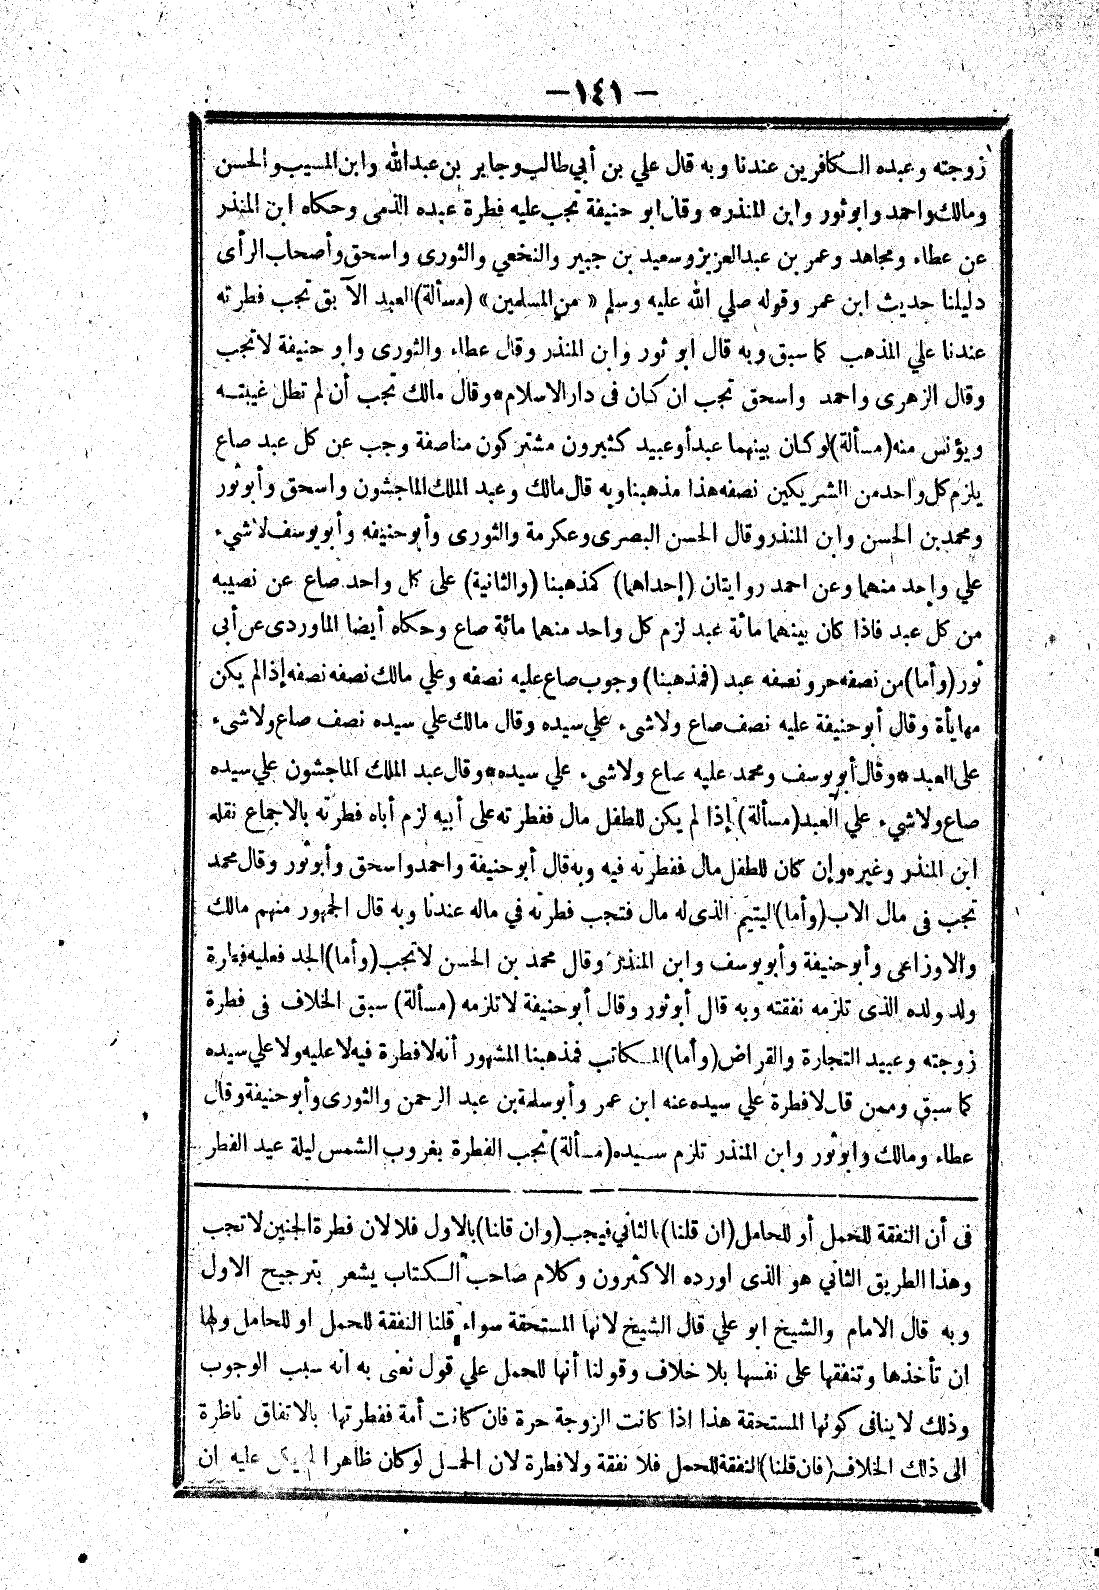 — ١٤١ —
زوجته وعبده الكافرين عندنا وبه قال علي بن أبي طالب وجابر بن عبد الله وابن المسيب والحسن
ومالك واحمد وابو ثور وابن المنذر* وقال ابو حنيفة تجب عليه فطرة عبده الذمى وحكاه ابن المنذر
عن عطاء ومجاهد وعمر بن عبد العزيز وسعيد بن جبير والنخعي والثورى واسحق وأصحاب الرأى
دليلنا حديث ابن عمر وقوله صلي الله عليه وسلم « من المسلمين » (مسألة) العبد الآبق تجب فطرته
عندنا علي المذهب كما سبق وبه قال ابو ثور وابن المنذر وقال عطاء والثورى وابو حنيفة لا تجب
وقال الزهرى واحمد واسحق تجب ان كان فى دار الاسلام* وقال مالك تجب أن لم تطل غيبته
ويؤنس منه (مسألة) لو كان بينهما عبد أو عبيد كثيرون مشتركون مناصفة وجب عن كل عبد صاع
يلزم كل واحد من الشريكين نصفه هذا مذهبنا وبه قال مالك وعبد الملك الماجشون واسحق وأبو ثور
ومحمد بن الحسن وابن المنذر وقال الحسن البصرى وعكرمة والثورى وأبو حنيفه وأبو يوسف لا شيء
علي واحد منهما وعن احمد روايتان (إحداهما) كمذهبنا (والثانية) على كل واحد صاع عن نصيبه
من كل عبد فاذا كان بينهما مائة عبد لزم كل واحد منهما مائة صاع وحكاه أيضا الماوردى عن أبى
ثور (وأما) من نصفه حر ونصفه عبد (فمذهبنا) وجوب صاع عليه نصفه وعلي مالك نصفه نصفه إذا لم يكن
مهايأة وقال أبو حنيفة عليه نصف صاع ولا شىء علي سيده وقال مالك علي سيده نصف صاع ولا شىء
على العبد* وقال أبو يوسف ومحمد عليه صاع ولا شىء علي سيده* وقال عبد الملك الماجشون علي سيده
صاع ولا شيء علي العبد (مسألة) إذا لم يكن للطفل مال ففطرته على أبيه لزم أباه فطرته بالاجماع نقله
ابن المنذر وغيره وإن كان للطفل مال ففطرته فيه وبه قال أبو حنيفة واحمد واسحق وأبو ثور وقال محمد
تجب فى مال الاب (وأما) اليتيم الذى له مال فتجب فطرته في ماله عندنا وبه قال الجمهور منهم مالك
والاوزاعى وأبو حنيفة وأبو يوسف وابن المنذر وقال محمد بن الحسن لا تجب (وأما) الجد فعليه فطرة
ولد ولده الذى تلزمه نفقته وبه قال أبو ثور وقال أبو حنيفة لا تلزمه (مسألة) سبق الخلاف فى فطرة
زوجته وعبيد التجارة والقراض (وأما) المكاتب فمذهبنا المشهور أنه لا فطرة فيه لا عليه ولا علي سيده
كما سبق وممن قال لا فطرة علي سيده عنه ابن عمر وأبو سلمة بن عبد الرحمن والثورى وأبو حنيفة وقال
عطاء ومالك وابو ثور وابن المنذر تلزم سيده (مسألة) تجب الفطرة بغروب الشمس ليلة عيد الفطر
فى أن النفقة للحمل أو للحامل (ان قلنا) بالثاني فيجب (وان قلنا) بالاول فلا لان فطرة الجنين لا تجب
وهذا الطريق الثاني هو الذى اورده الاكثرون وكلام صاحب الكتاب يشعر بترجيح الاول
وبه قال الامام والشيخ ابو علي قال الشيخ لانها المستحقة سواء قلنا النفقة للحمل او للحامل ولها
ان تأخذها وتنفقها على نفسها بلا خلاف وقولنا أنها للحمل علي قول نعنى به انه سبب الوجوب
وذلك لا ينافى كونها المستحقة هذا اذا كانت الزوجة حرة فان كانت أمة ففطرتها بالاتفاق ناظرة
الى ذلك الخلاف (فان قلنا) النفقة للحمل فلا نفقة ولا فطرة لان الحمل لو كان ظاهرا لم يكن عليه ان